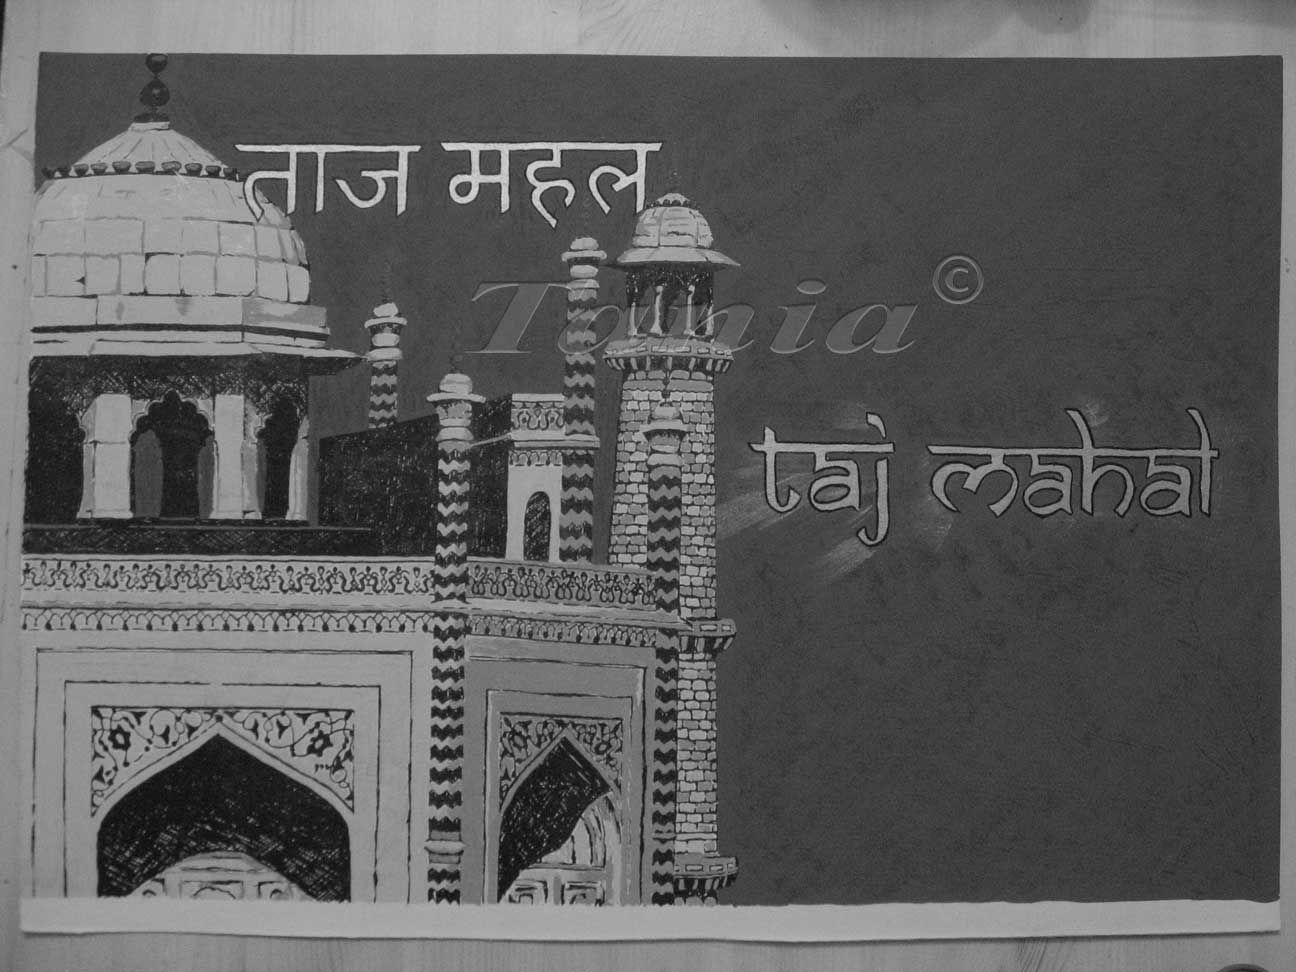 ताज महल
Tania©
taj mahal